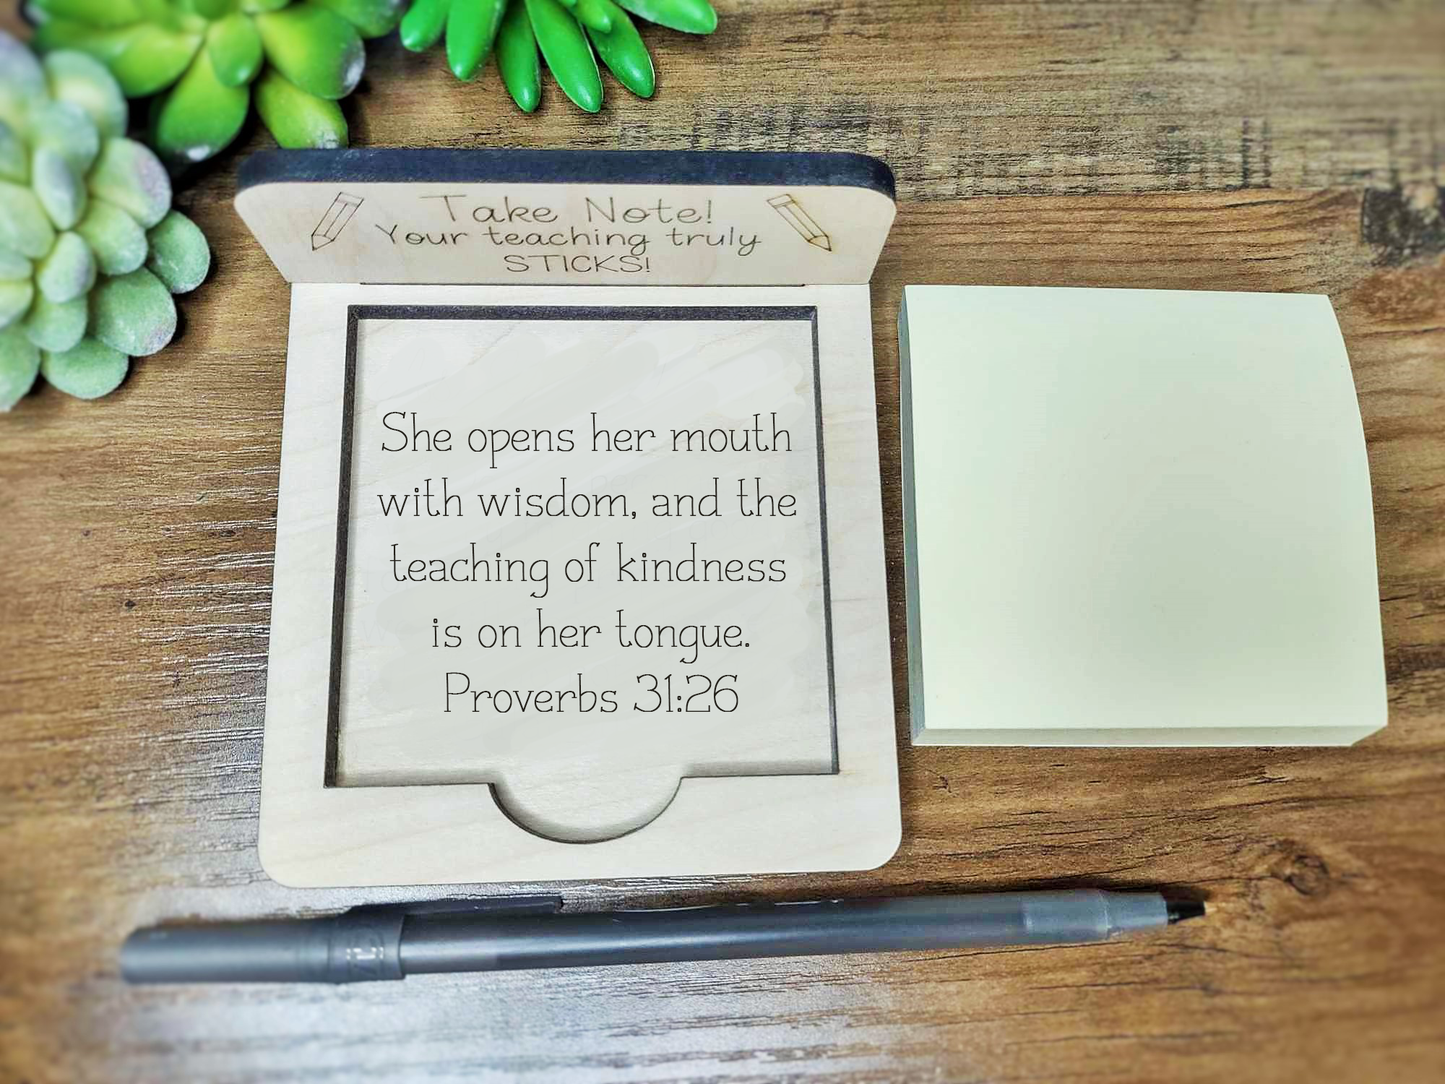 Take Note!
Your teaching truly
STICKS!
She opens her mouth
with wisdom, and the
teaching of kindness
is on her tongue.
Proverbs 31:26